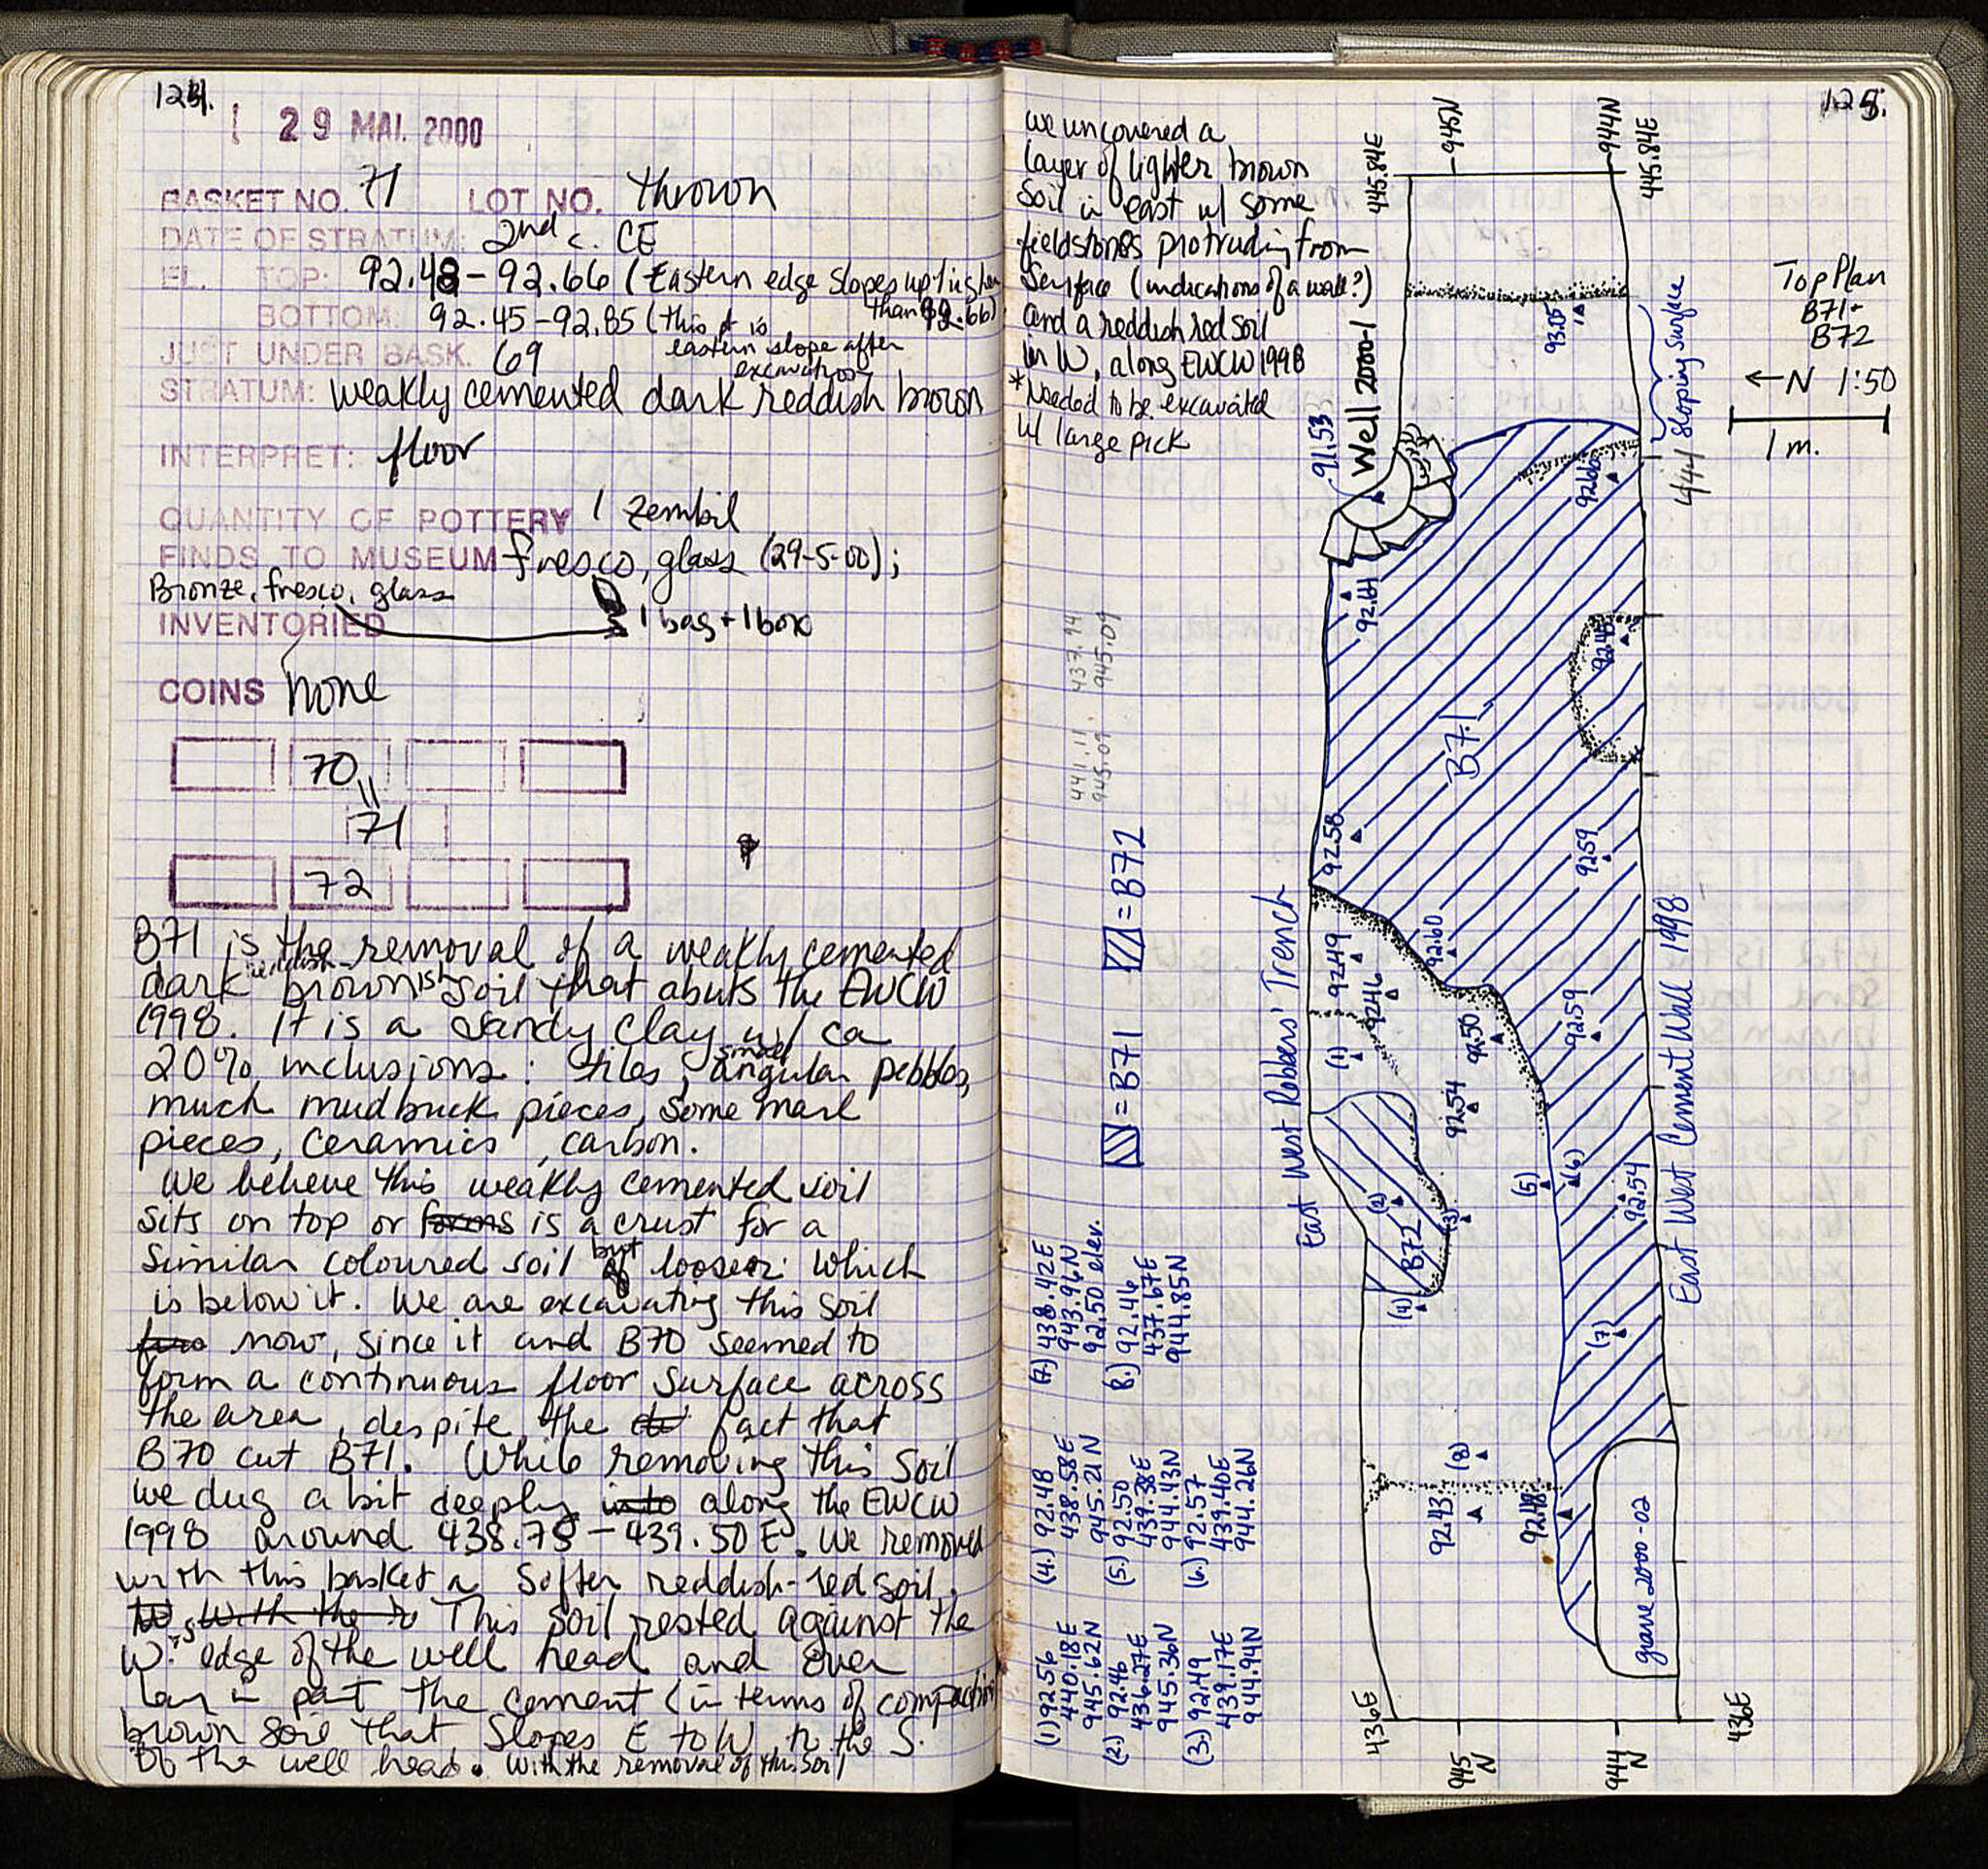 124.
29 MAI. 2000
BASKET NO. 71 LOT NO. thrown
DATE OF STRATUM: 2nd c. CE
EL. TOP: 92.48-92.66 (Eastern edge slopes up higher
than 92.66)
BOTTOM: 92.45-92.85 (this pt is
eastern slope after
excavation
JUST UNDER BASK. 69
STRATUM: weakly cemented dark reddish brown
INTERPRET: floor
QUANTITY OF POTTERY 1 zembil
FINDS TO MUSEUM fresco, glass (29-5-00);
Bronze, fresco, glass
INVENTORIED 1 bag + 1 box
COINS none
70
71
72
B71 is the removal of a weakly cemented
dark reddish brownish soil that abuts the EWCW
1998. It is a sandy clay w/ ca
20% inclusions: tiles, small angular pebbles,
much mudbrick pieces, some marl
pieces, ceramics, carbon.
We believe this weakly cemented soil
sits on top or forms is a crust for a
similar coloured soil but looser which
is below it. We are excavating this soil
now, since it and B70 seemed to
form a continuous floor surface across
the area, despite the fact that
B70 cut B71. While removing this soil
we dug a bit deeply into along the EWCW
1998 around 438.75-439.50E. We removed
with this basket a softer reddish-red soil.
W with the r This soil rested against the
W's edge of the well head and over
lay in part the cement (in terms of compaction)
brown soil that slopes E to W, to the S.
of the well head. With the removal of this soil
125.
we uncovered a
layer of lighter brown
soil in east w/ some
fieldstones protruding from
surface (indications of a wall?)
and a reddish red soil
in W, along EWCW 1998
*Needed to be excavated
w/ large pick
Top Plan
B71+
B72
←N 1:50
1 m.
445.84E
945N
944N
445.84E
93.05
Sloping Surface
444
Well 2000-1
91.53
92.66
92.61
92.45
441.11 437.94
945.09 945.09
B71
92.58
92.59
92.60
92.49
92.46
(1)
92.50
92.59
92.54
(2)
(3)
(4)
B72
(5)
(6)
92.54
(7)
(8)
92.43
92.48
East West Robbers' Trench
East West Cement Wall 1998
grave 2000-02
436E
945
N
944
N
436E
= B71
= B72
(1) 92.56
440.18E
945.62N
(2.) 92.46
436.27E
945.36N
(3.) 92.49
439.17E
944.94N
(4.) 92.48
438.58E
945.21N
(5.) 92.50
439.38E
944.43N
(6.) 92.57
439.40E
944.26N
(7.) 438.42E
943.96N
92.50 elev.
8.) 92.46
437.67E
944.85N